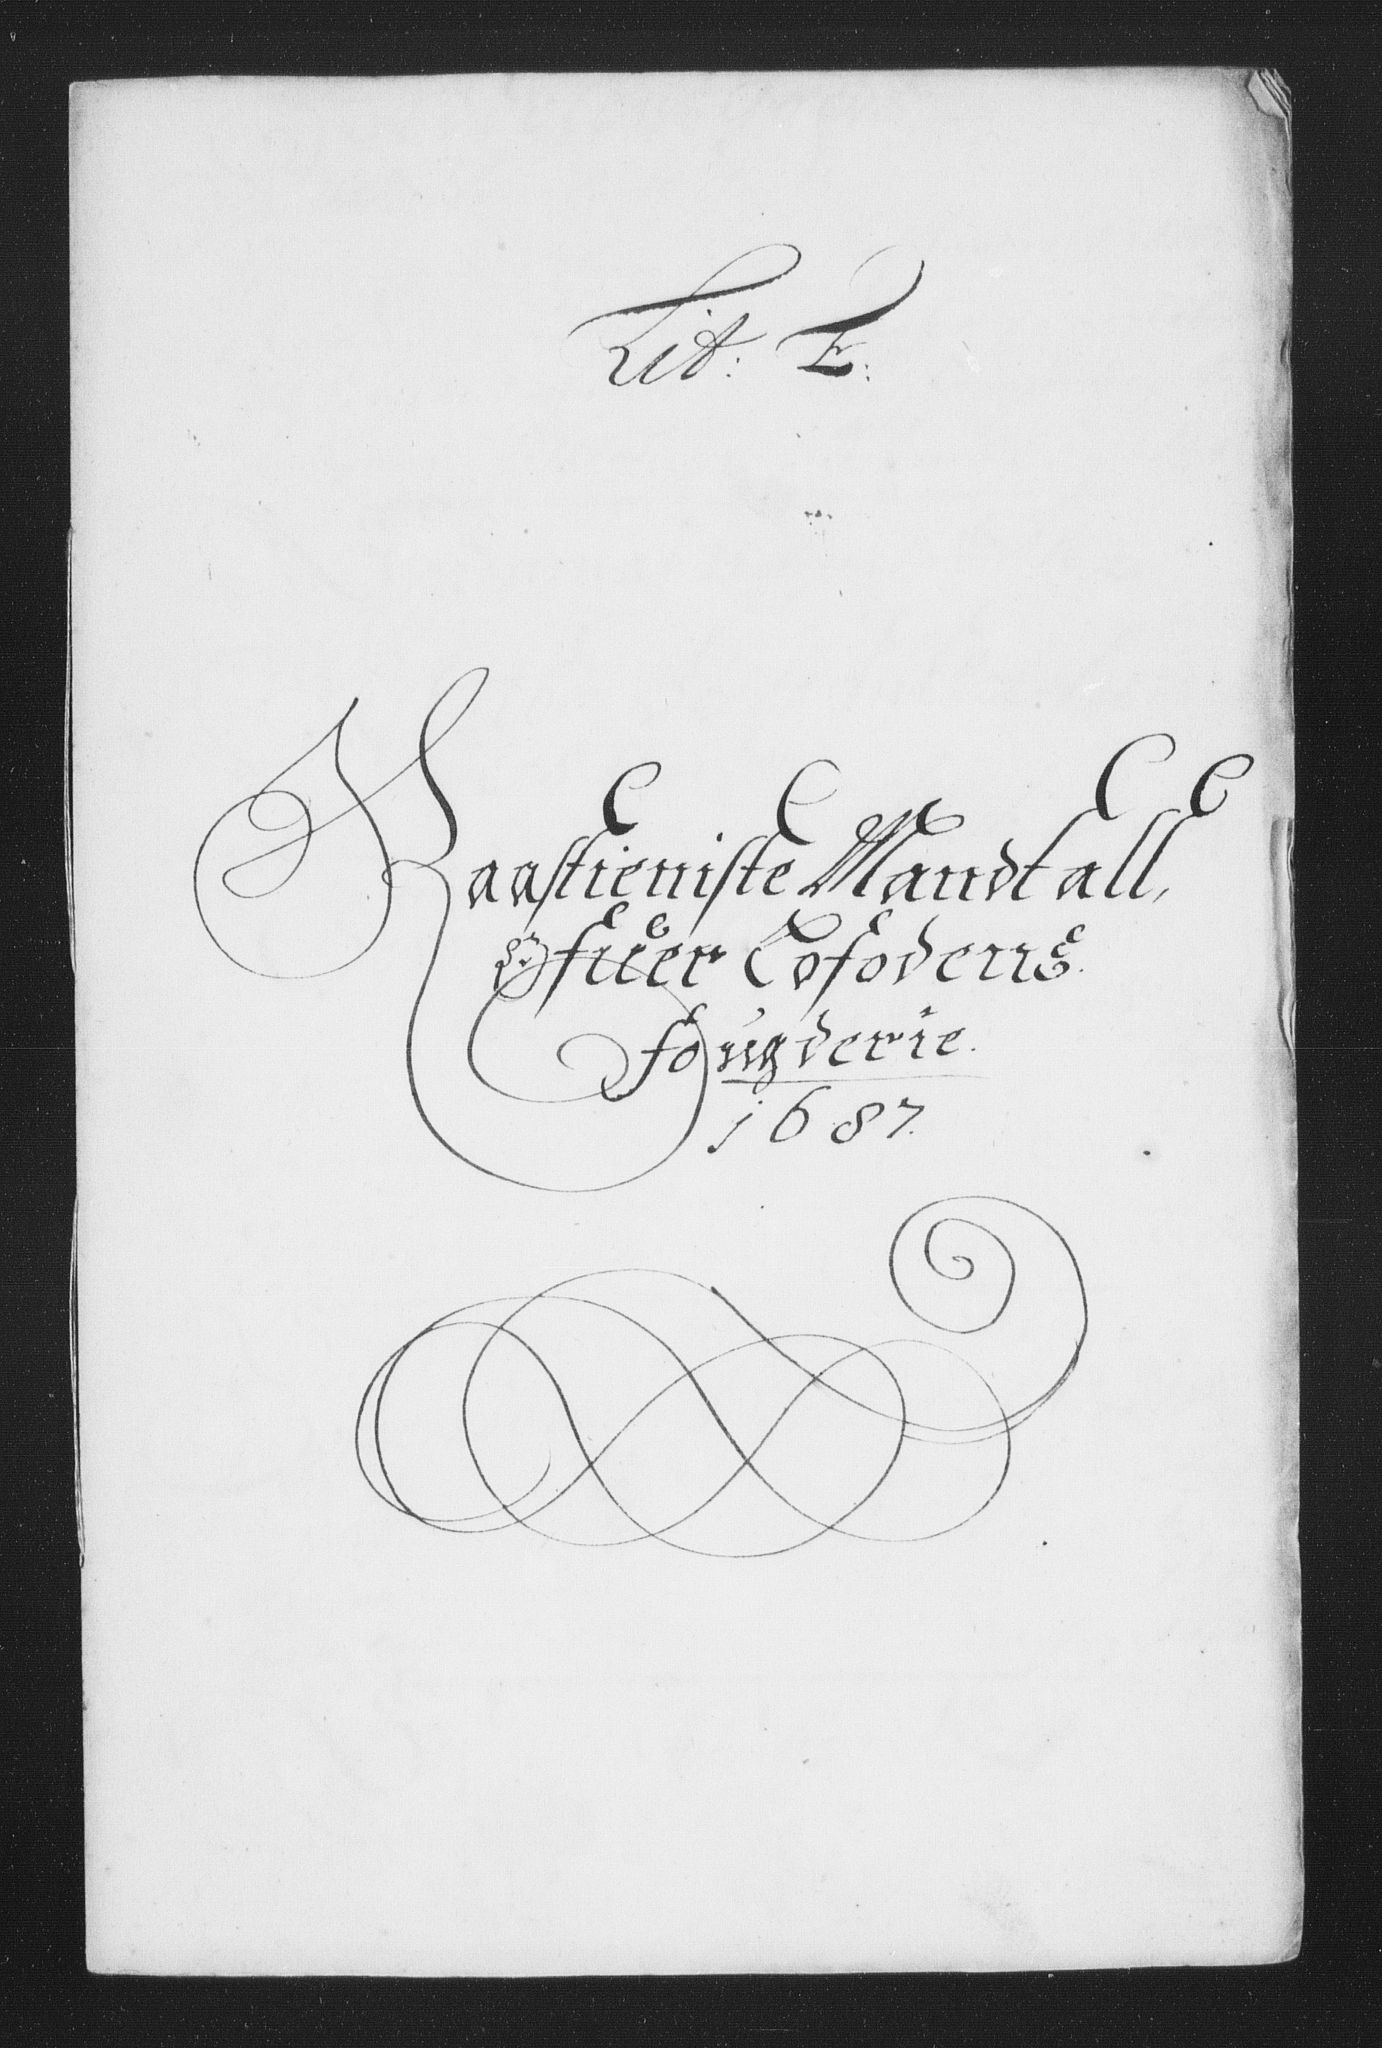 Lit: E:
Raastieniste Mandtall,
Ofuer Lofodens
fougderie.
1687.